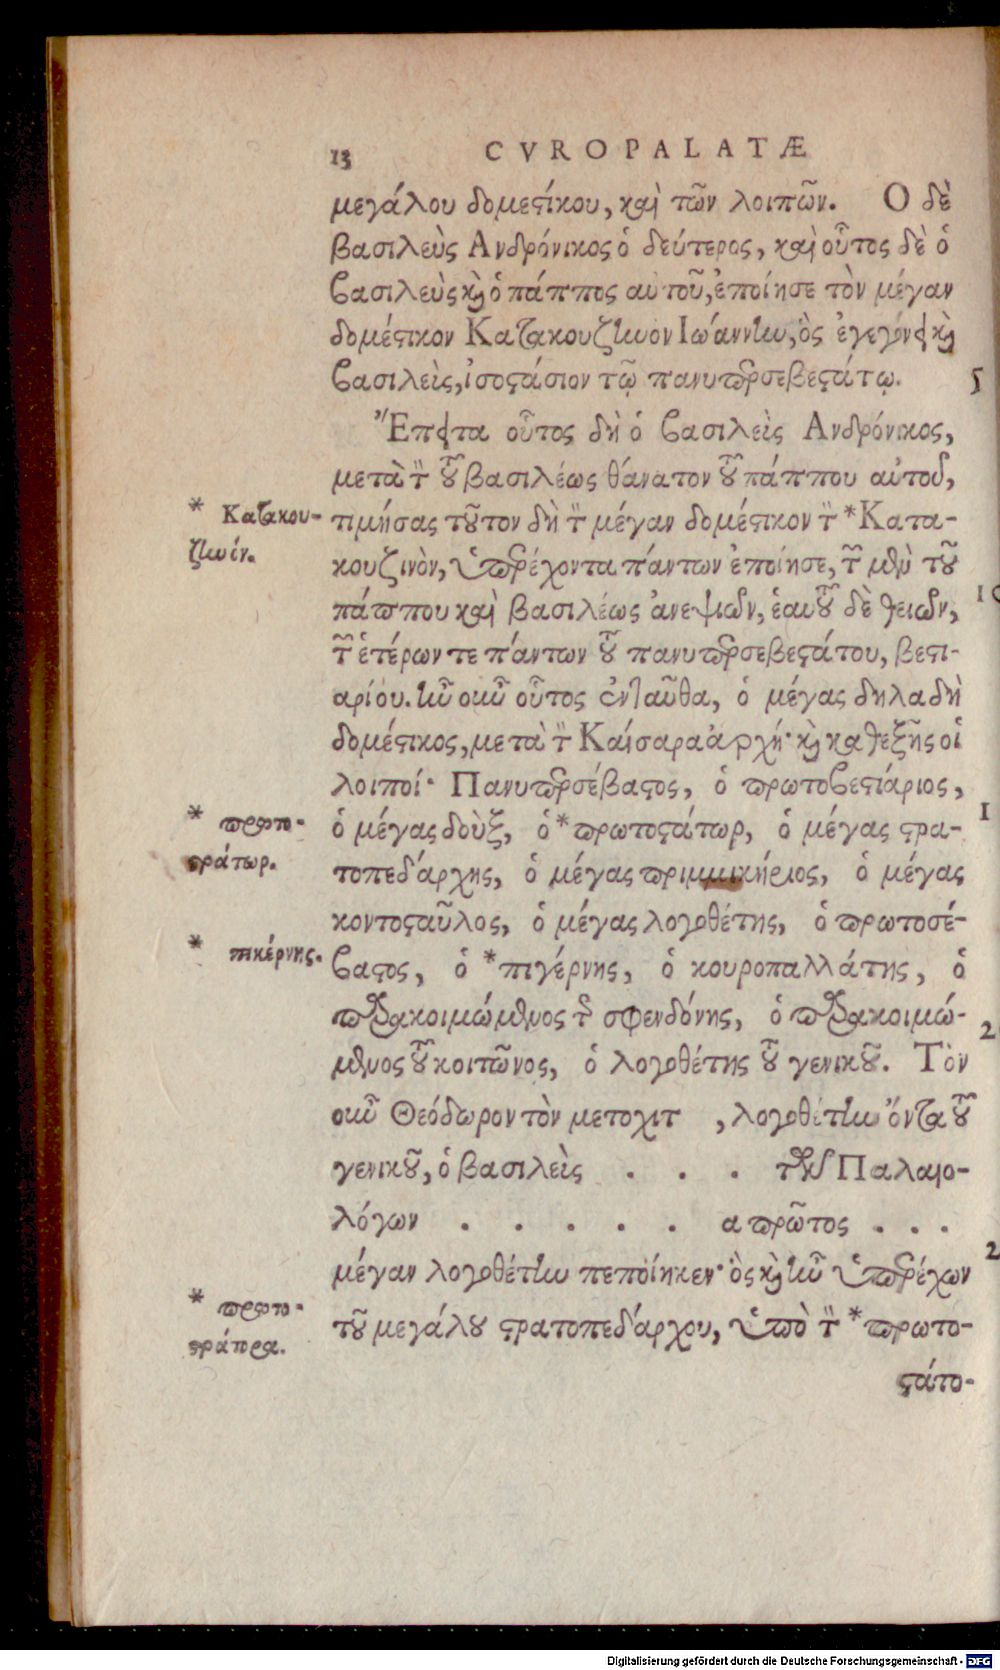 13 CVROPALATÆ
μεγάλου δομεϛίκου, καὶ τῶν λοιπῶν. Ο δὲ
βασιλεὺς Ανδρόνικος ὁ δεύτερος, καὶ οὗτος δὲ ὁ
βασιλεὺς καὶ ὁ πάππος αὐτοῦ, ἐποίησε τὸν μέγαν
δομέϛικον Κατακουζηνὸν Ιωάννην, ὃς ἐγεγόνει καὶ
βασιλεὺς, ἰσοϛάσιον τῷ πανυπερσεβεϛάτῳ.
5
Ἔπειτα οὗτος δὴ ὁ βασιλεὺς Ανδρόνικος,
μετὰ τὸν τοῦ βασιλέως θάνατον τοῦ πάππου αὐτοῦ,
* Κατακου-
ζηνόν.
τιμήσας τοῦτον δὴ τὸν μέγαν δομέϛικον τὸν *Κατα-
κουζινὸν, ὑπερέχοντα πάντων ἐποίησε, τῶν μὲν τοῦ
πάππου καὶ βασιλέως ἀνεψιῶν, ἑαυτοῦ δὲ θειῶν,
10
τῶν ἑτέρων τε πάντων τοῦ πανυπερσεβεϛάτου, βεϛι-
αρίου. ἦν οὖν οὗτος ἐνταῦθα, ὁ μέγας δηλαδὴ
δομέϛικος, μετὰ τὸν Καίσαρα ἀρχή· καὶ καθεξῆς οἱ
λοιποί· Πανυπερσέβαϛος, ὁ πρωτοβεϛιάριος,
* πρωτο-
ϛράτωρ.
ὁ μέγας δοὺξ, ὁ *πρωτοϛάτωρ, ὁ μέγας ϛρα-
1
τοπεδάρχης, ὁ μέγας πριμμικήριος, ὁ μέγας
κοντοϛαῦλος, ὁ μέγας λογοθέτης, ὁ πρωτοσέ-
* πικέρνης.
βαϛος, ὁ *πιγέρνης, ὁ κουροπαλλάτης, ὁ
παρακοιμώμενος τῆς σφενδόνης, ὁ παρακοιμώ-
2
μενος τοῦ κοιτῶνος, ὁ λογοθέτης τοῦ γενικοῦ. Τὸν
οὖν Θεόδωρον τὸν μετοχιτ , λογοθέτην ὄντα τοῦ
γενικοῦ, ὁ βασιλεὺς . . . τῶν Παλαιο-
λόγων . . . . . α πρῶτος . . .
2
μέγαν λογοθέτην πεποίηκεν· ὃς καὶ ἦν ὑπερέχων
* πρωτο-
ϛράτορα.
τοῦ μεγάλου ϛρατοπεδάρχου, ὑπὸ τὸν *πρωτο-
ϛάτο-
Digitalisierung gefördert durch die Deutsche Forschungsgemeinschaft - DFG